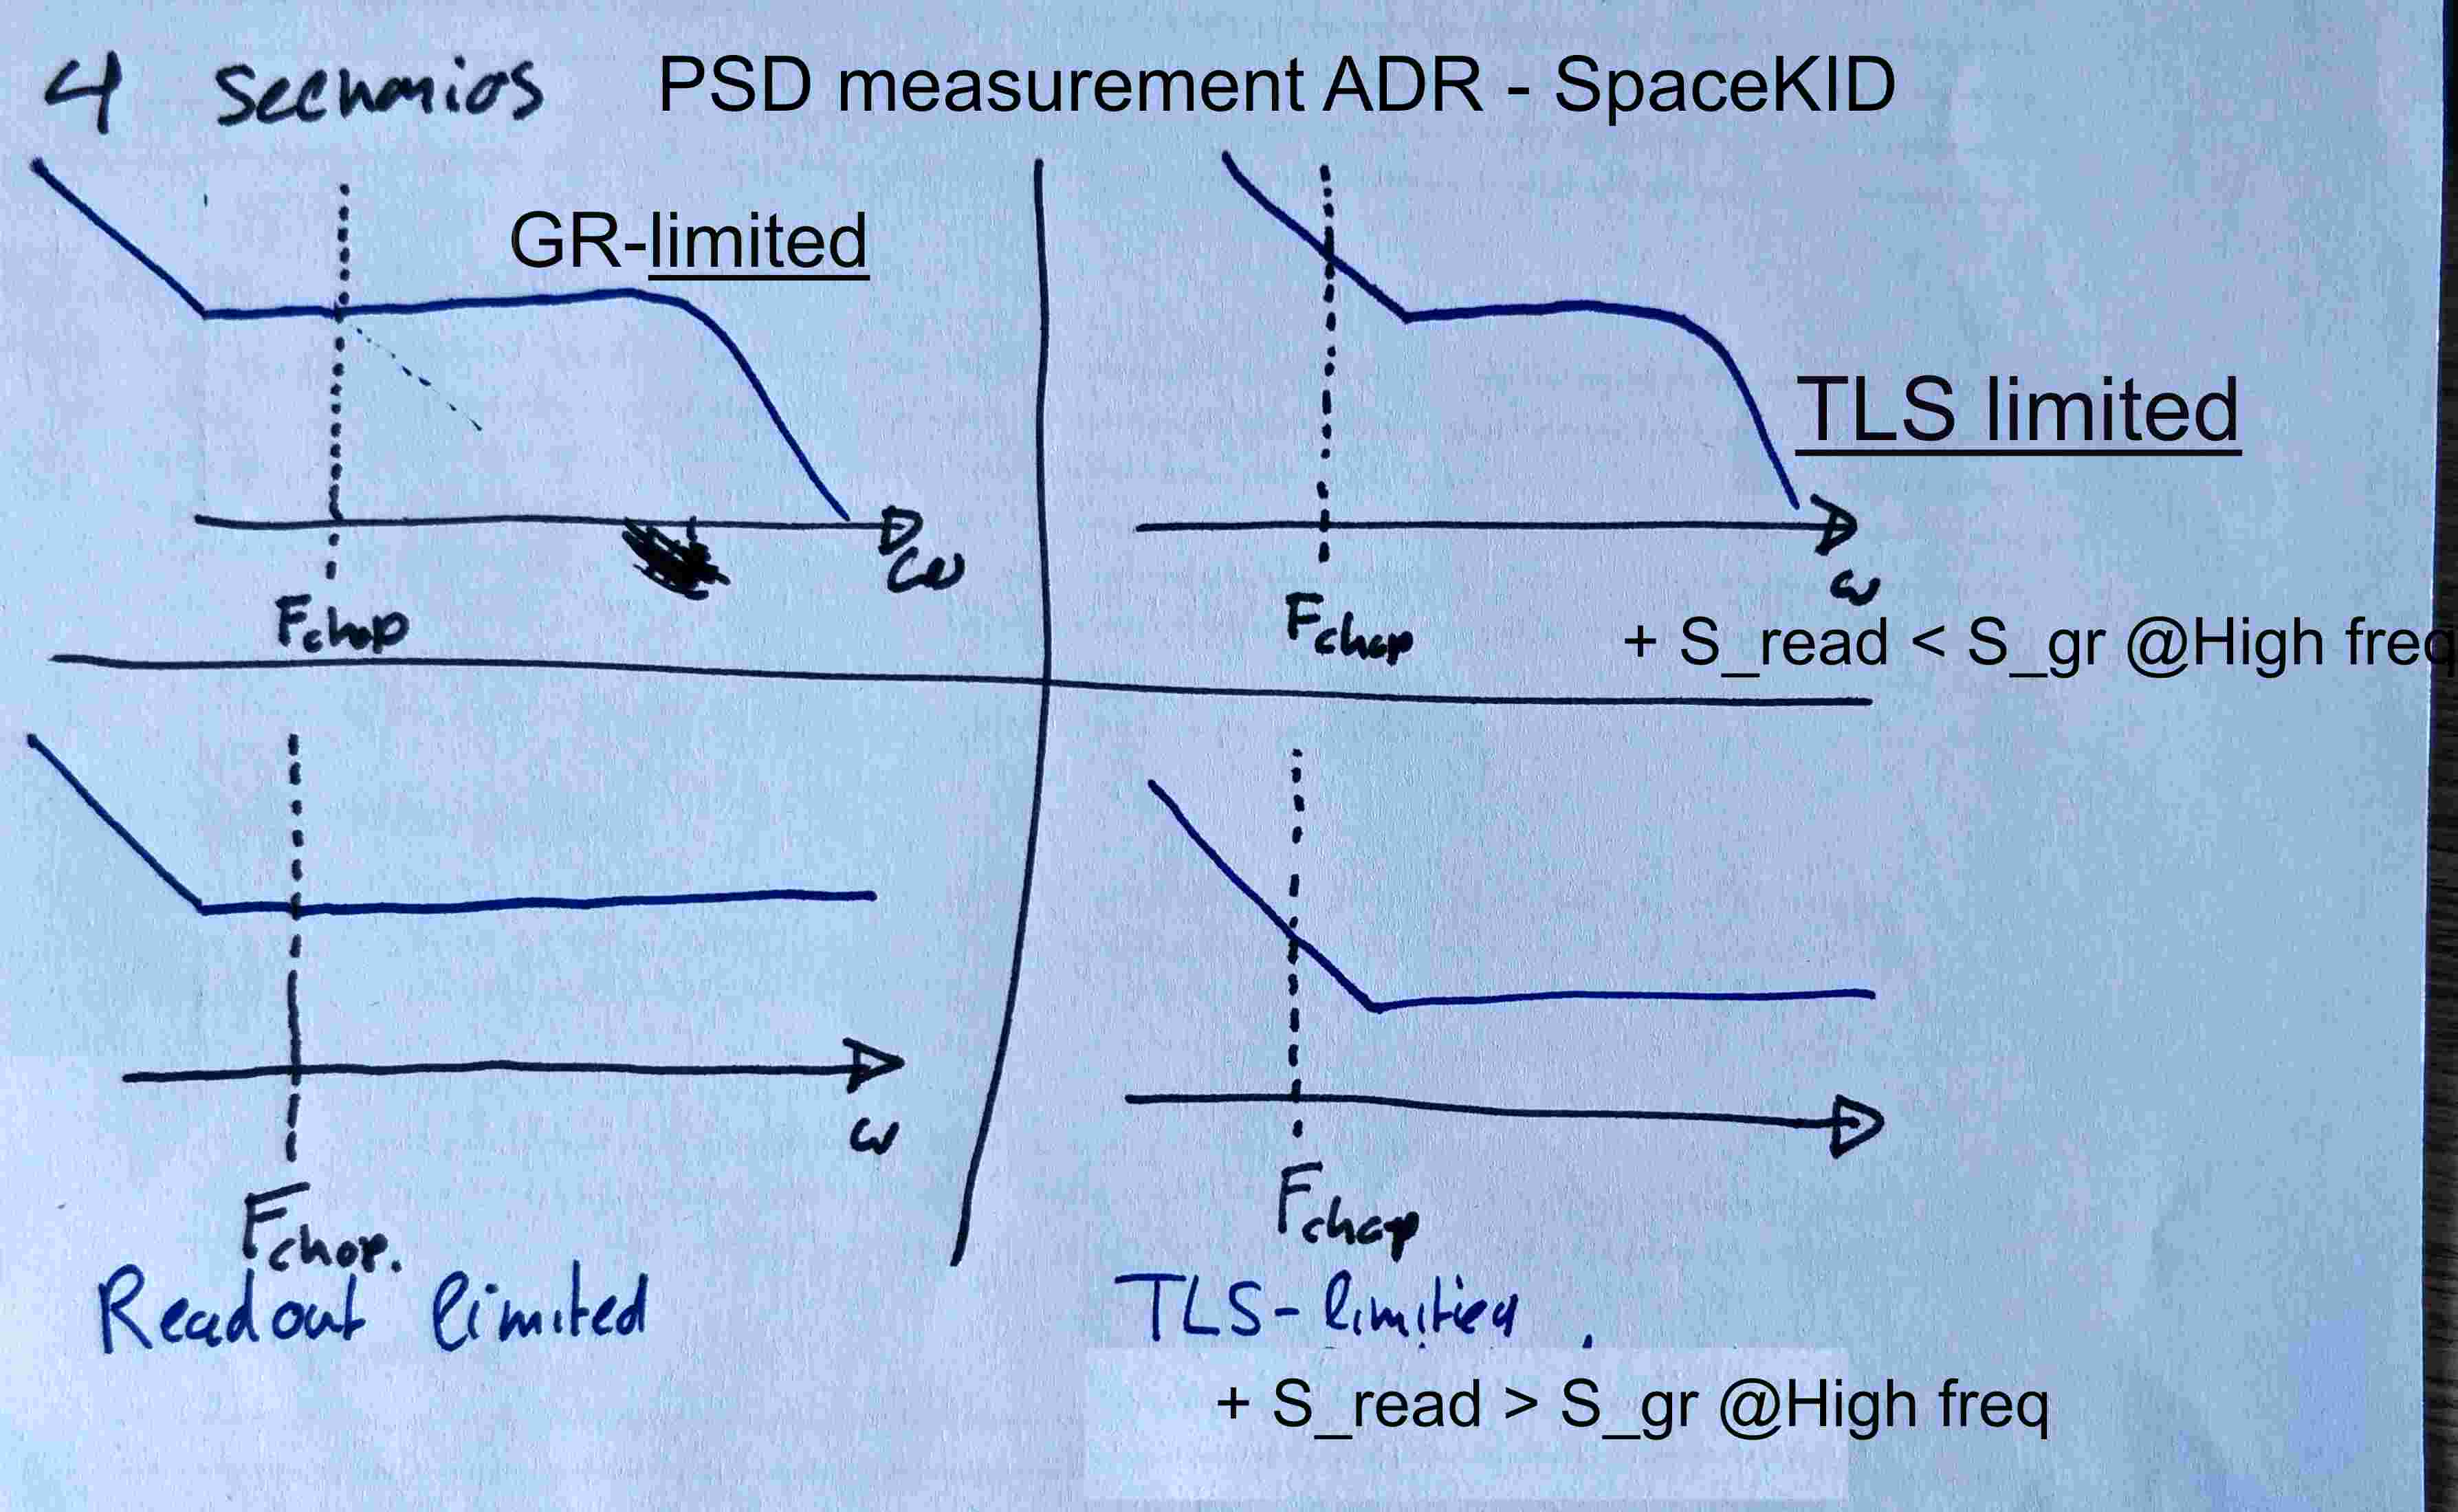 4 Secnarios PSD measurement ADR - SpaceKID
GR-limited
ω
Fchop
TLS limited
ω
Fchop
+ S_read < S_gr @High freq
ω
Fchop.
Readout limited
Fchop
TLS-limitied.
+ S_read > S_gr @High freq